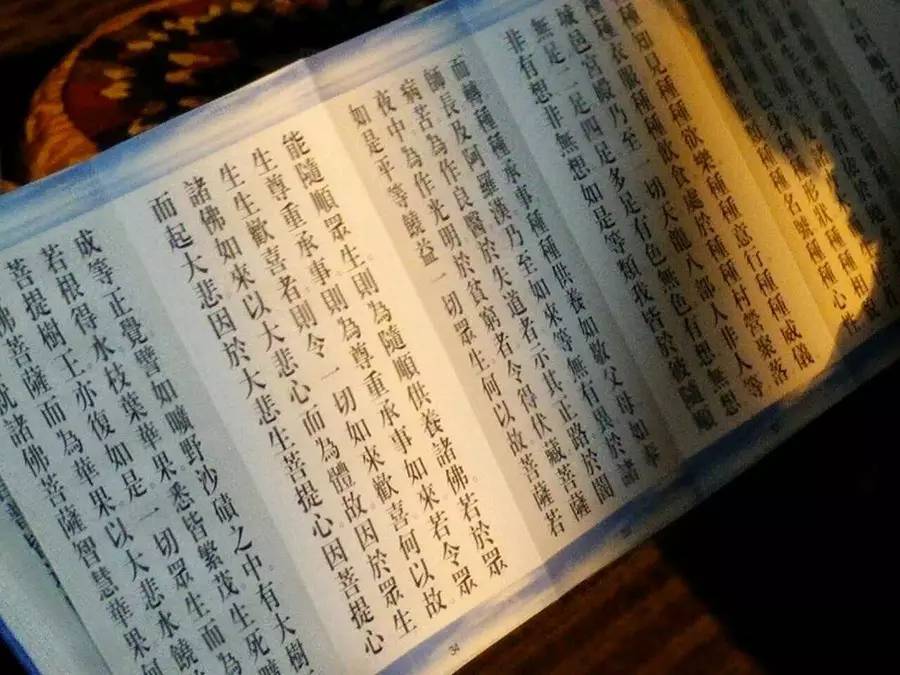 形狀種種相
種種名號種種心性
種知見種種欲樂種種意行種種威儀
種種衣服種種飲食處於種種村營聚落
城邑宮殿乃至一切天龍八部人非人等
無足二足四足多足有色無色有想無想
非有想非無想如是等類我皆於彼隨順
而轉種種承事種種供養如敬父母如奉
師長及阿羅漢乃至如來等無有異於諸
病苦為作良醫於失道者示其正路於闇
夜中為作光明於貧窮者令得伏藏菩薩
如是平等饒益一切眾生何以故菩薩若
能隨順眾生則為隨順供養諸佛若於眾
生尊重承事則為尊重承事如來若令眾
生生歡喜者則令一切如來歡喜何以故
諸佛如來以大悲心而為體故因於眾生
而起大悲因於大悲生菩提心因菩提心
34
成等正覺譬如曠野沙磧之中有大樹
若根得水枝葉華果悉皆繁茂生死曠
菩提樹王亦復如是一切眾生而為
佛菩薩而為華果以大悲水饒
就諸佛菩薩智慧華果何